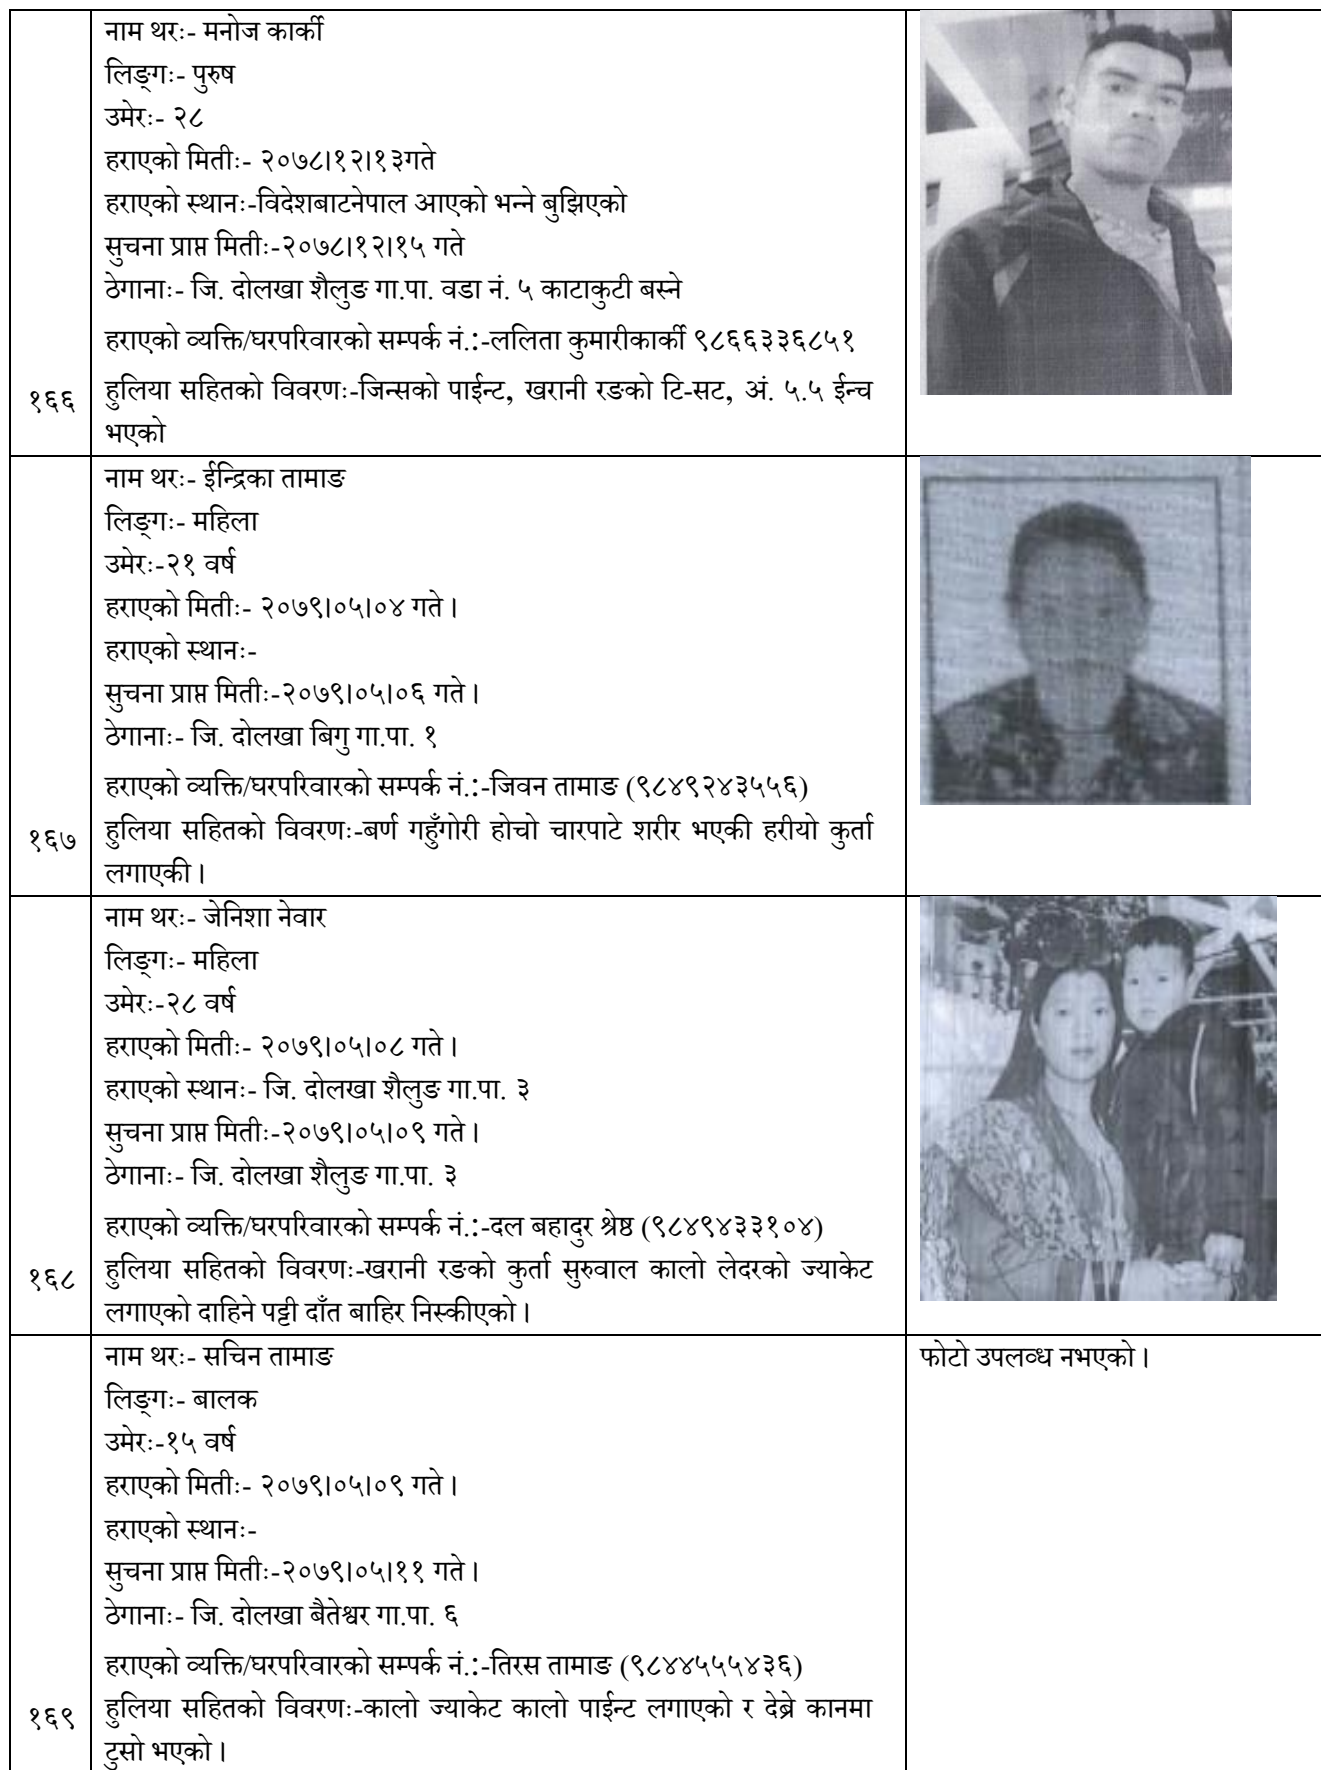 नाम थरः- मनोज कार्की
लिङ्गः- पुरुष
उमेरः- २८
हराएको मितीः- २०७८।१२।१३गते
हराएको स्थानः-विदेशबाटनेपाल आएको भन्ने बुझिएको
सुचना प्राप्त मितीः-२०७८।१२।१५ गते
ठेगानाः- जि. दोलखा शैलुङ गा.पा. वडा नं. ५ काटाकुटी बस्ने
हराएको व्यक्ति/घरपरिवारको सम्पर्क नं.:-ललिता कुमारीकार्की ९८६६३३६८५१
१६६ हुलिया सहितको विवरणः-जिन्सको पाईन्ट, खरानी रङको टि-सट, अं. ५.५ ईन्च
भएको
नाम थरः- ईन्द्रिका तामाङ
लिङ्गः- महिला
उमेरः-२१ वर्ष
हराएको मितीः- २०७९।०५।०४ गते।
हराएको स्थानः-
सुचना प्राप्त मितीः-२०७९।०५।०६ गते।
ठेगानाः- जि. दोलखा बिगु गा.पा. १
हराएको व्यक्ति/घरपरिवारको सम्पर्क नं.:-जिवन तामाङ (९८४९२४३५५६)
१६७ हुलिया सहितको विवरणः-बर्ण गहुँगोरी होचो चारपाटे शरीर भएकी हरीयो कुर्ता
लगाएकी।
नाम थरः- जेनिशा नेवार
लिङ्गः- महिला
उमेरः-२८ वर्ष
हराएको मितीः- २०७९।०५।०८ गते।
हराएको स्थानः- जि. दोलखा शैलुङ गा.पा. ३
सुचना प्राप्त मितीः-२०७९।०५।०९ गते।
ठेगानाः- जि. दोलखा शैलुङ गा.पा. ३
हराएको व्यक्ति/घरपरिवारको सम्पर्क नं.:-दल बहादुर श्रेष्ठ (९८४९४३३१०४)
१६८ हुलिया सहितको विवरणः-खरानी रङको कुर्ता सुरुवाल कालो लेदरको ज्याकेट
लगाएको दाहिने पट्टी दाँत बाहिर निस्कीएको।
नाम थरः- सचिन तामाङ
फोटो उपलव्ध नभएको।
लिङ्गः- बालक
उमेरः-१५ वर्ष
हराएको मितीः- २०७९।०५।०९ गते।
हराएको स्थानः-
सुचना प्राप्त मितीः-२०७९।०५।११ गते।
ठेगानाः- जि. दोलखा बैतेश्वर गा.पा. ६
हराएको व्यक्ति/घरपरिवारको सम्पर्क नं.:-तिरस तामाङ (९८४४५५५४३६)
१६९ हुलिया सहितको विवरणः-कालो ज्याकेट कालो पाईन्ट लगाएको र देब्रे कानमा
टुसो भएको।